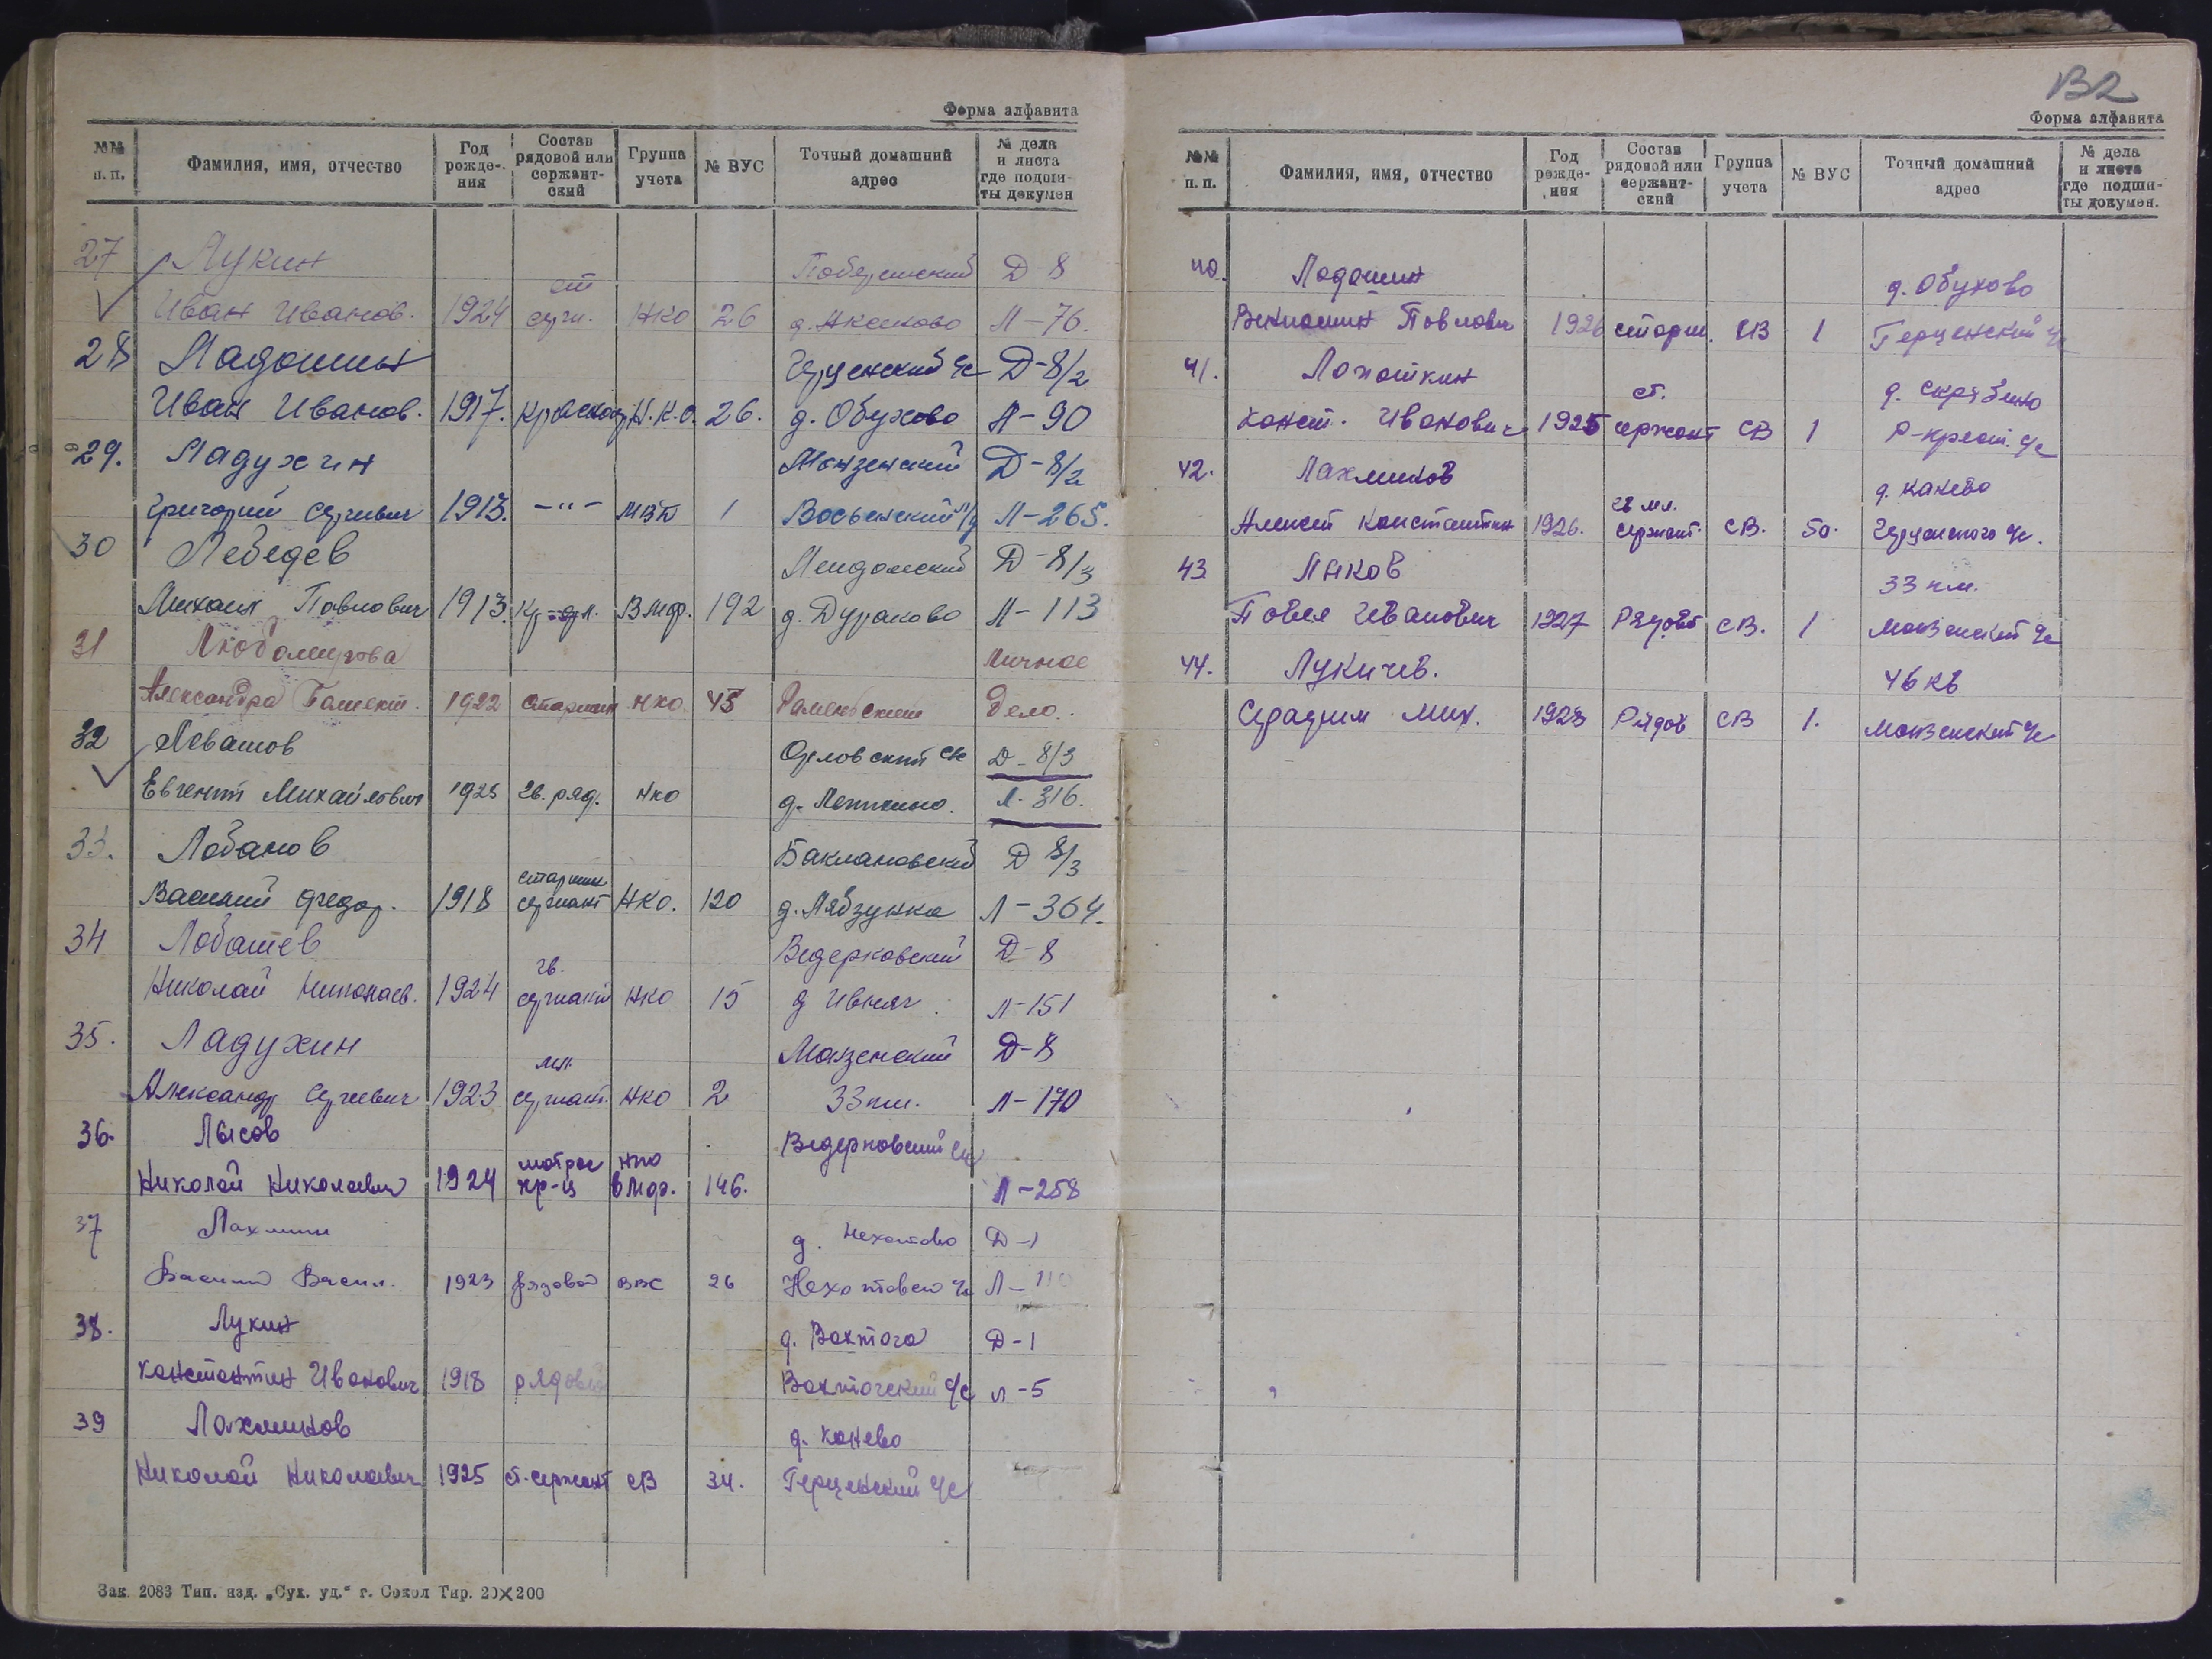 Форма алфавита
№№ п. п. Фамилия, имя, отчество Год рожде-ния Состав рядовой или сержант-ский Группа учета № ВУС Точный домашний адрес № дела и листа где подши-ты докумен
27 Лукин Д-8
Иван Иванов. 1924 ст серж. НКО 26 д. Аксеково Л-76.
28 Ладошин Герценский с/с Д-8/2
Иван Иванов. 1917. красноар Н.К.О. 26. д. Обухово Л-90
29. Ладухин Монзенский Д-8/2
Григорий Сергеевич 1913. -"- МВД 1 Л-265.
30 Лебедев Д-8/3
Михаил Павлович 1913. ВМФ. 192 д. Дураково Л-113
31 Любомирова Личное
Александра 1922 старшин НКО 45 Раменский дело.
32 Левашов Орловский с/с Д-8/3
Евгений Михайлович 1925 гв. ряд. НКО Л-316.
33. Лобанов Баклановский Д 8/3
Василий Федор. 1918 старший сержант НКО. 120 д. Лябзунка Л-364.
34 Лобашев Ведерковский Д-8
Николай 1924 гв. сержант НКО 15 д Ивняг Л-151
35. Ладухин Монзенский Д-8
Александр Сергеевич 1923 мл. сержант. НКО 2 33 км. Л-170
36. Лысов Ведерковский с/с
Николай Николаевич 1924 матрос кр-ц НКО ВМФ. 146. Л-258
37 Лахмин д. Нехотово Д-1
Василий Васил. 1923 рядовой ВВС 26 Л-110
38. Лукин д. Вохтога Д-1
Константин Иванович 1918 рядовой Вохтогский с/с Л-5
39 Лахмиков д. Конево
Николай Николаевич 1925 ст. сержант СВ 34. Герценский с/с
Зак. 2083 Тип. изд. „Сух. уд.“ г. Сокол Тир. 20×200
В2
Форма алфавита
№№ п. п. Фамилия, имя, отчество Год рожде-ния Состав рядовой или сержант-ский Группа учета № ВУС Точный домашний адрес № дела и листа где подши-ты докумен.
40. Ладошин д. Обухово
Вениамин Павлович 1926 старш. СВ 1 Герценский с/с
41. Лопаткин д. Скрябино
Конст. Иванович 1925 ст. сержант СВ 1 Р-крест. с/с
42. Лахмиков д. Канево
Алексей Константин 1926. гв мл. сержант. СВ. 50. Герценского с/с.
43 Лыков 33 км.
Павел Иванович 1927 Рядов СВ. 1 Монзенский с/с
44. Лукичев. 46 кв
Серафим Мих. 1928 Рядов СВ 1. Монзенский с/с